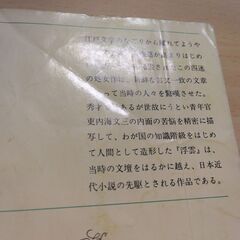 江戸文学のなごりから離れてようや
められた二葉亭四迷
の処女作は、新鮮な言文一致の文章
って当時の人々を驚嘆させた。
秀才ではあるが世故にうとい青年官
吏内海文三の内面の苦悩を精密に描
写して、わが国の知識階級をはじめ
て人間として造形した『浮雲』は、
当時の文壇をはるかに越え、日本近
代小説の先駆とされる作品である。